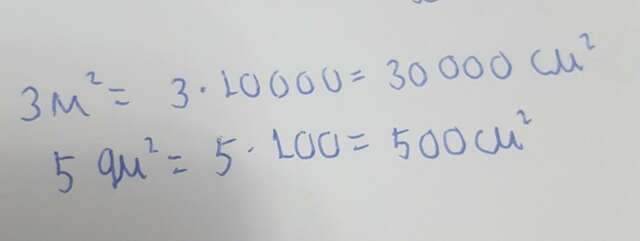 3м² = 3 · 10000 = 30000 см²
5 дм² = 5 · 100 = 500 см²